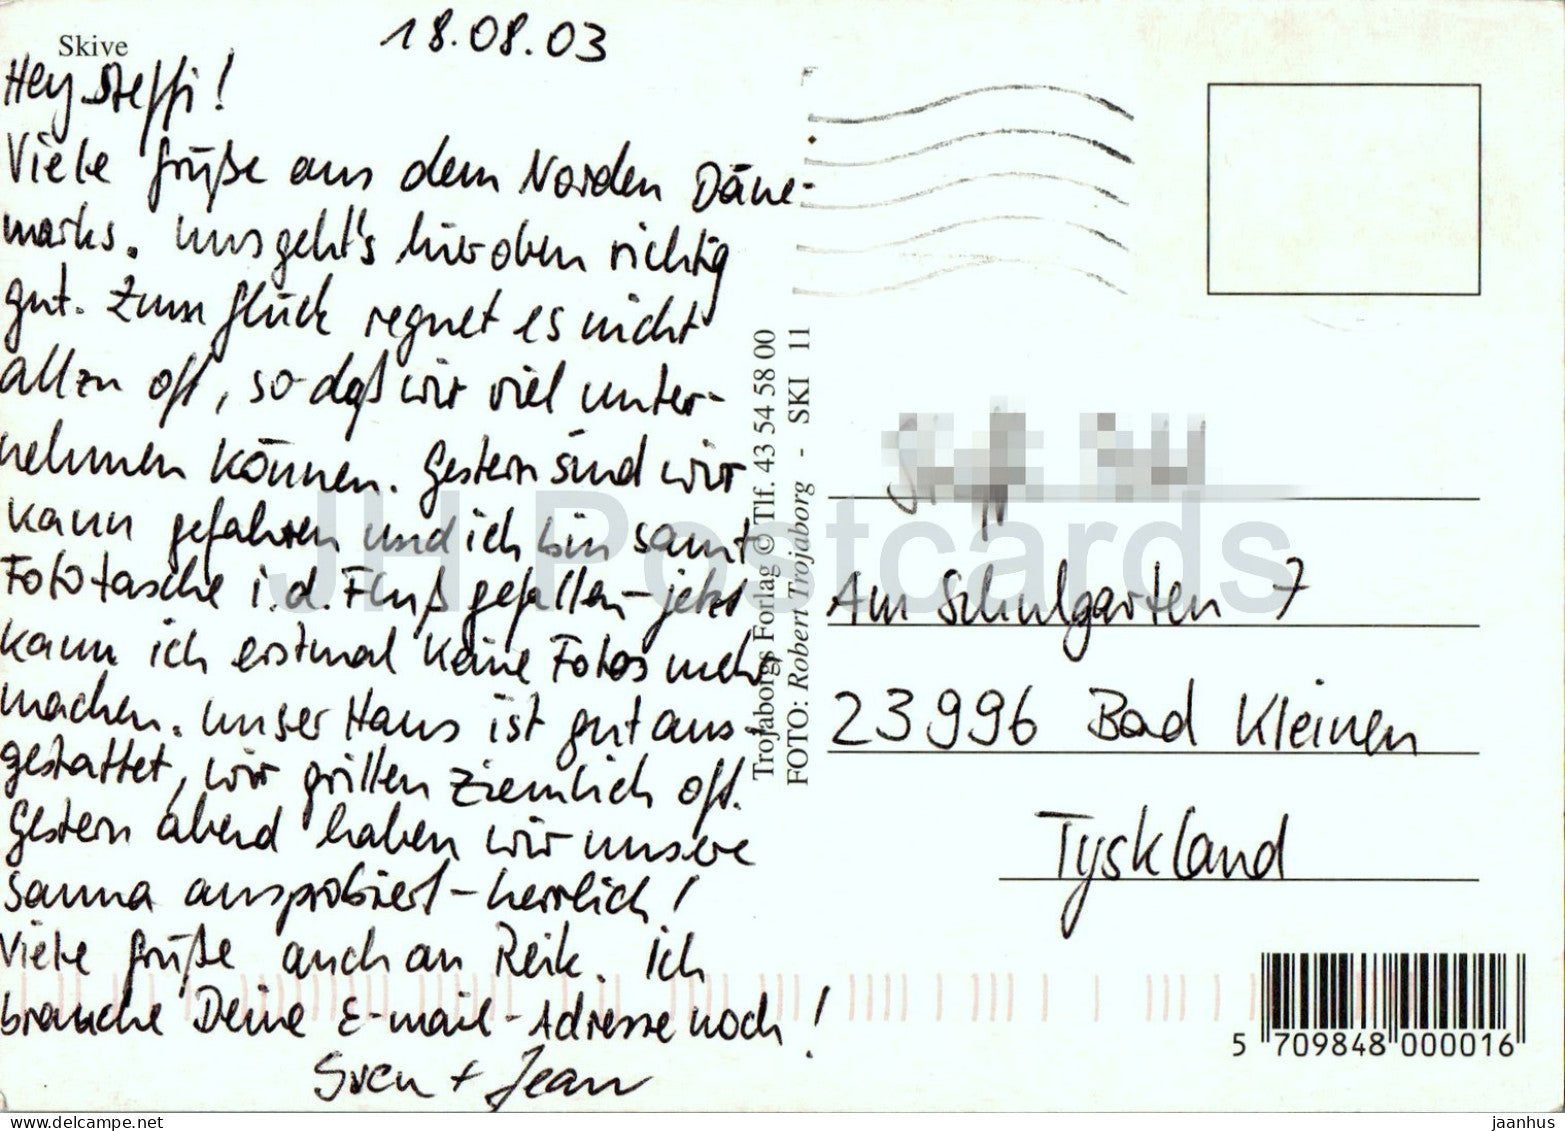 Skive
18.08.03
Hey Steffi!
Viele Grüße aus dem Norden Däne-
marks. Uns geht's hier oben richtig
gut. Zum Glück regnet es nicht
allzu oft, so daß wir viel unter-
nehmen können. Gestern sind wir
Kanu gefahren und ich bin samt
Fototasche i.d. Fluß gefallen - jetzt
kann ich erstmal keine Fotos mehr
machen. Unser Haus ist gut aus-
gestattet, wir grillen ziemlich oft.
Gestern abend haben wir unsere
Sauna ausprobiert - herrlich!
Viele Grüße auch an Reik. Ich
brauche Deine E-mail-Adresse noch!
Sven + Jean
Trojaborgs Forlag © Tlf. 43 54 58 00
FOTO: Robert Trojaborg - SKI 11
Am Schulgarten 7
23996 Bad Kleinen
Tyskland
5 709848 000016
JH Postcards
delcampe.net
jaanhus